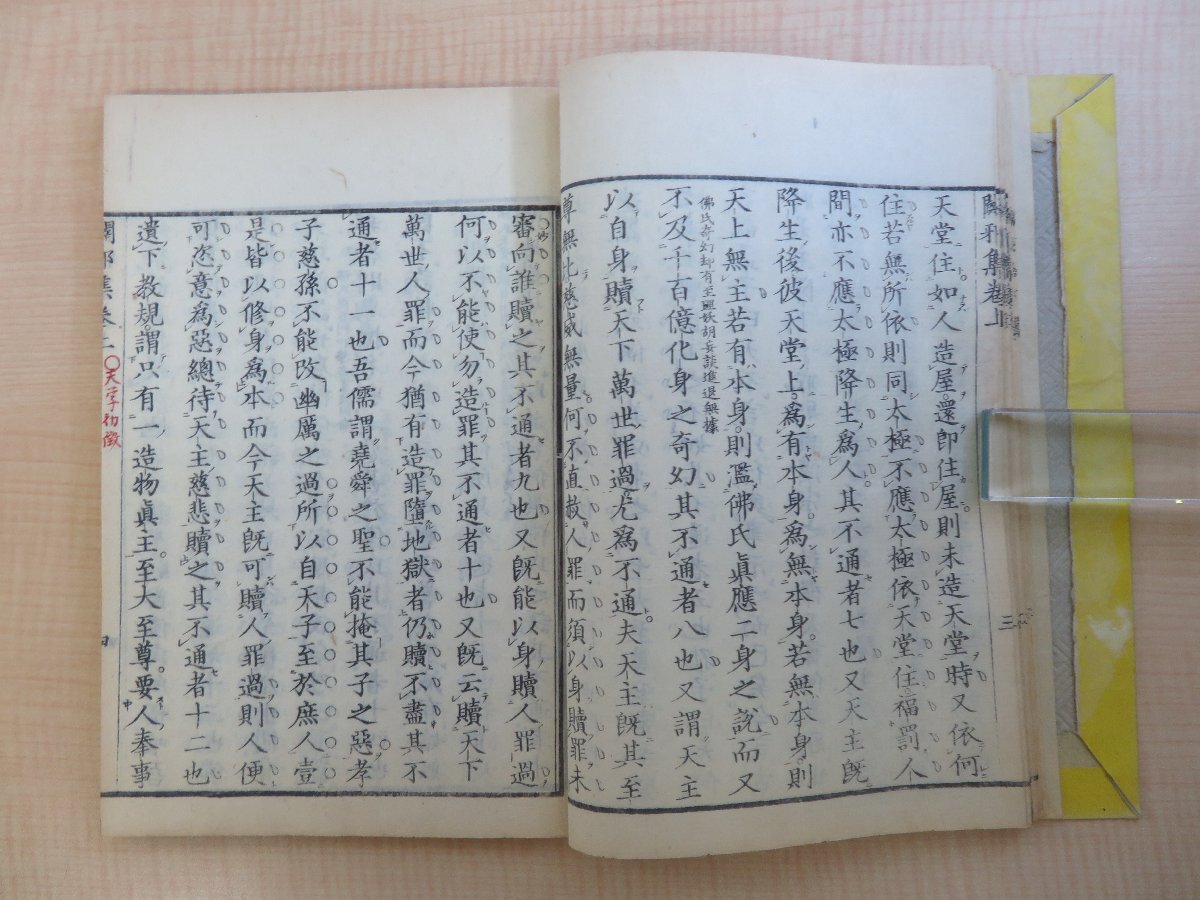 闢邪集卷上
天堂住如人造屋還卽住屋則未造天堂時又依何
住若無所依則同太極不應太極依天堂住福罰人
間亦不應太極降生爲人其不通者七也又天主既
降生後彼天堂上爲有本身爲無本身若無本身則
天上無主若有本身則濫佛氏眞應二身之說而又
不及千百億化身之奇幻其不通者八也又謂天主
佛氏奇幻却有至無據
以自身贖天下萬世罪過尤爲不通夫天主既其至
尊無比慈威無量何不直赦人罪而須以身贖罪未
三
審向誰贖之其不通者九也又既能以身贖人罪過
何以不能使勿造罪其不通者十也又既云贖天下
萬世人罪而今猶有造罪墮地獄者仍贖不盡其不
通者十一也吾儒謂堯舜之聖不能掩其子之惡孝
子慈孫不能改幽厲之過所以自天子至於庶人壹
是皆以修身爲本而今天主既可贖人罪過則人便
可恣意爲惡總待天主慈悲贖之其不通者十二也
遺下教規謂只有一造物眞主至大至尊要人奉事
闢邪集卷上
〇天學初徵
四